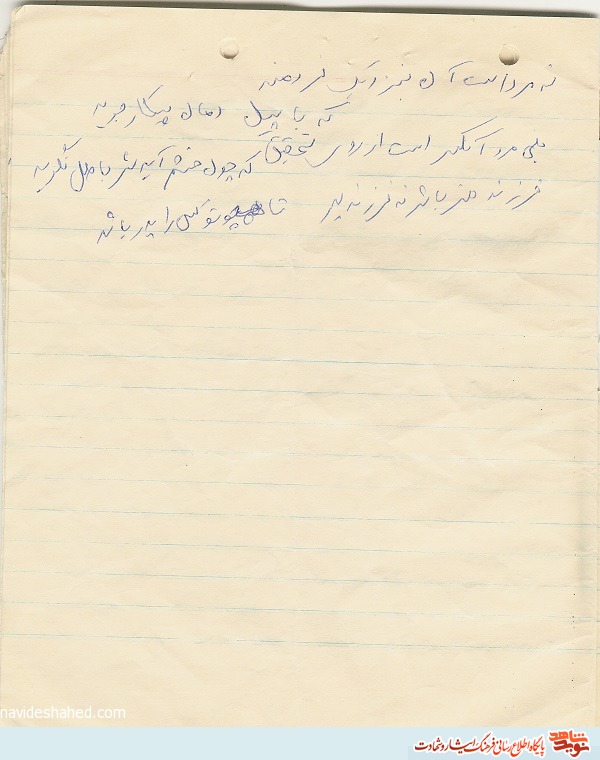 نه مرد است آن بنزدیک خردمند
که با پیل دمان پیکار جوید
بلی مرد آنکس است از روی تحقیق
که چون خشم آیدش باطل نگوید
فرزند هنر باش نه فرزند پدر
تا چو تو کس را پدر باشد
navideshahed.com
نوید شاهد
پایگاه اطلاع رسانی فرهنگ ایثار و شهادت